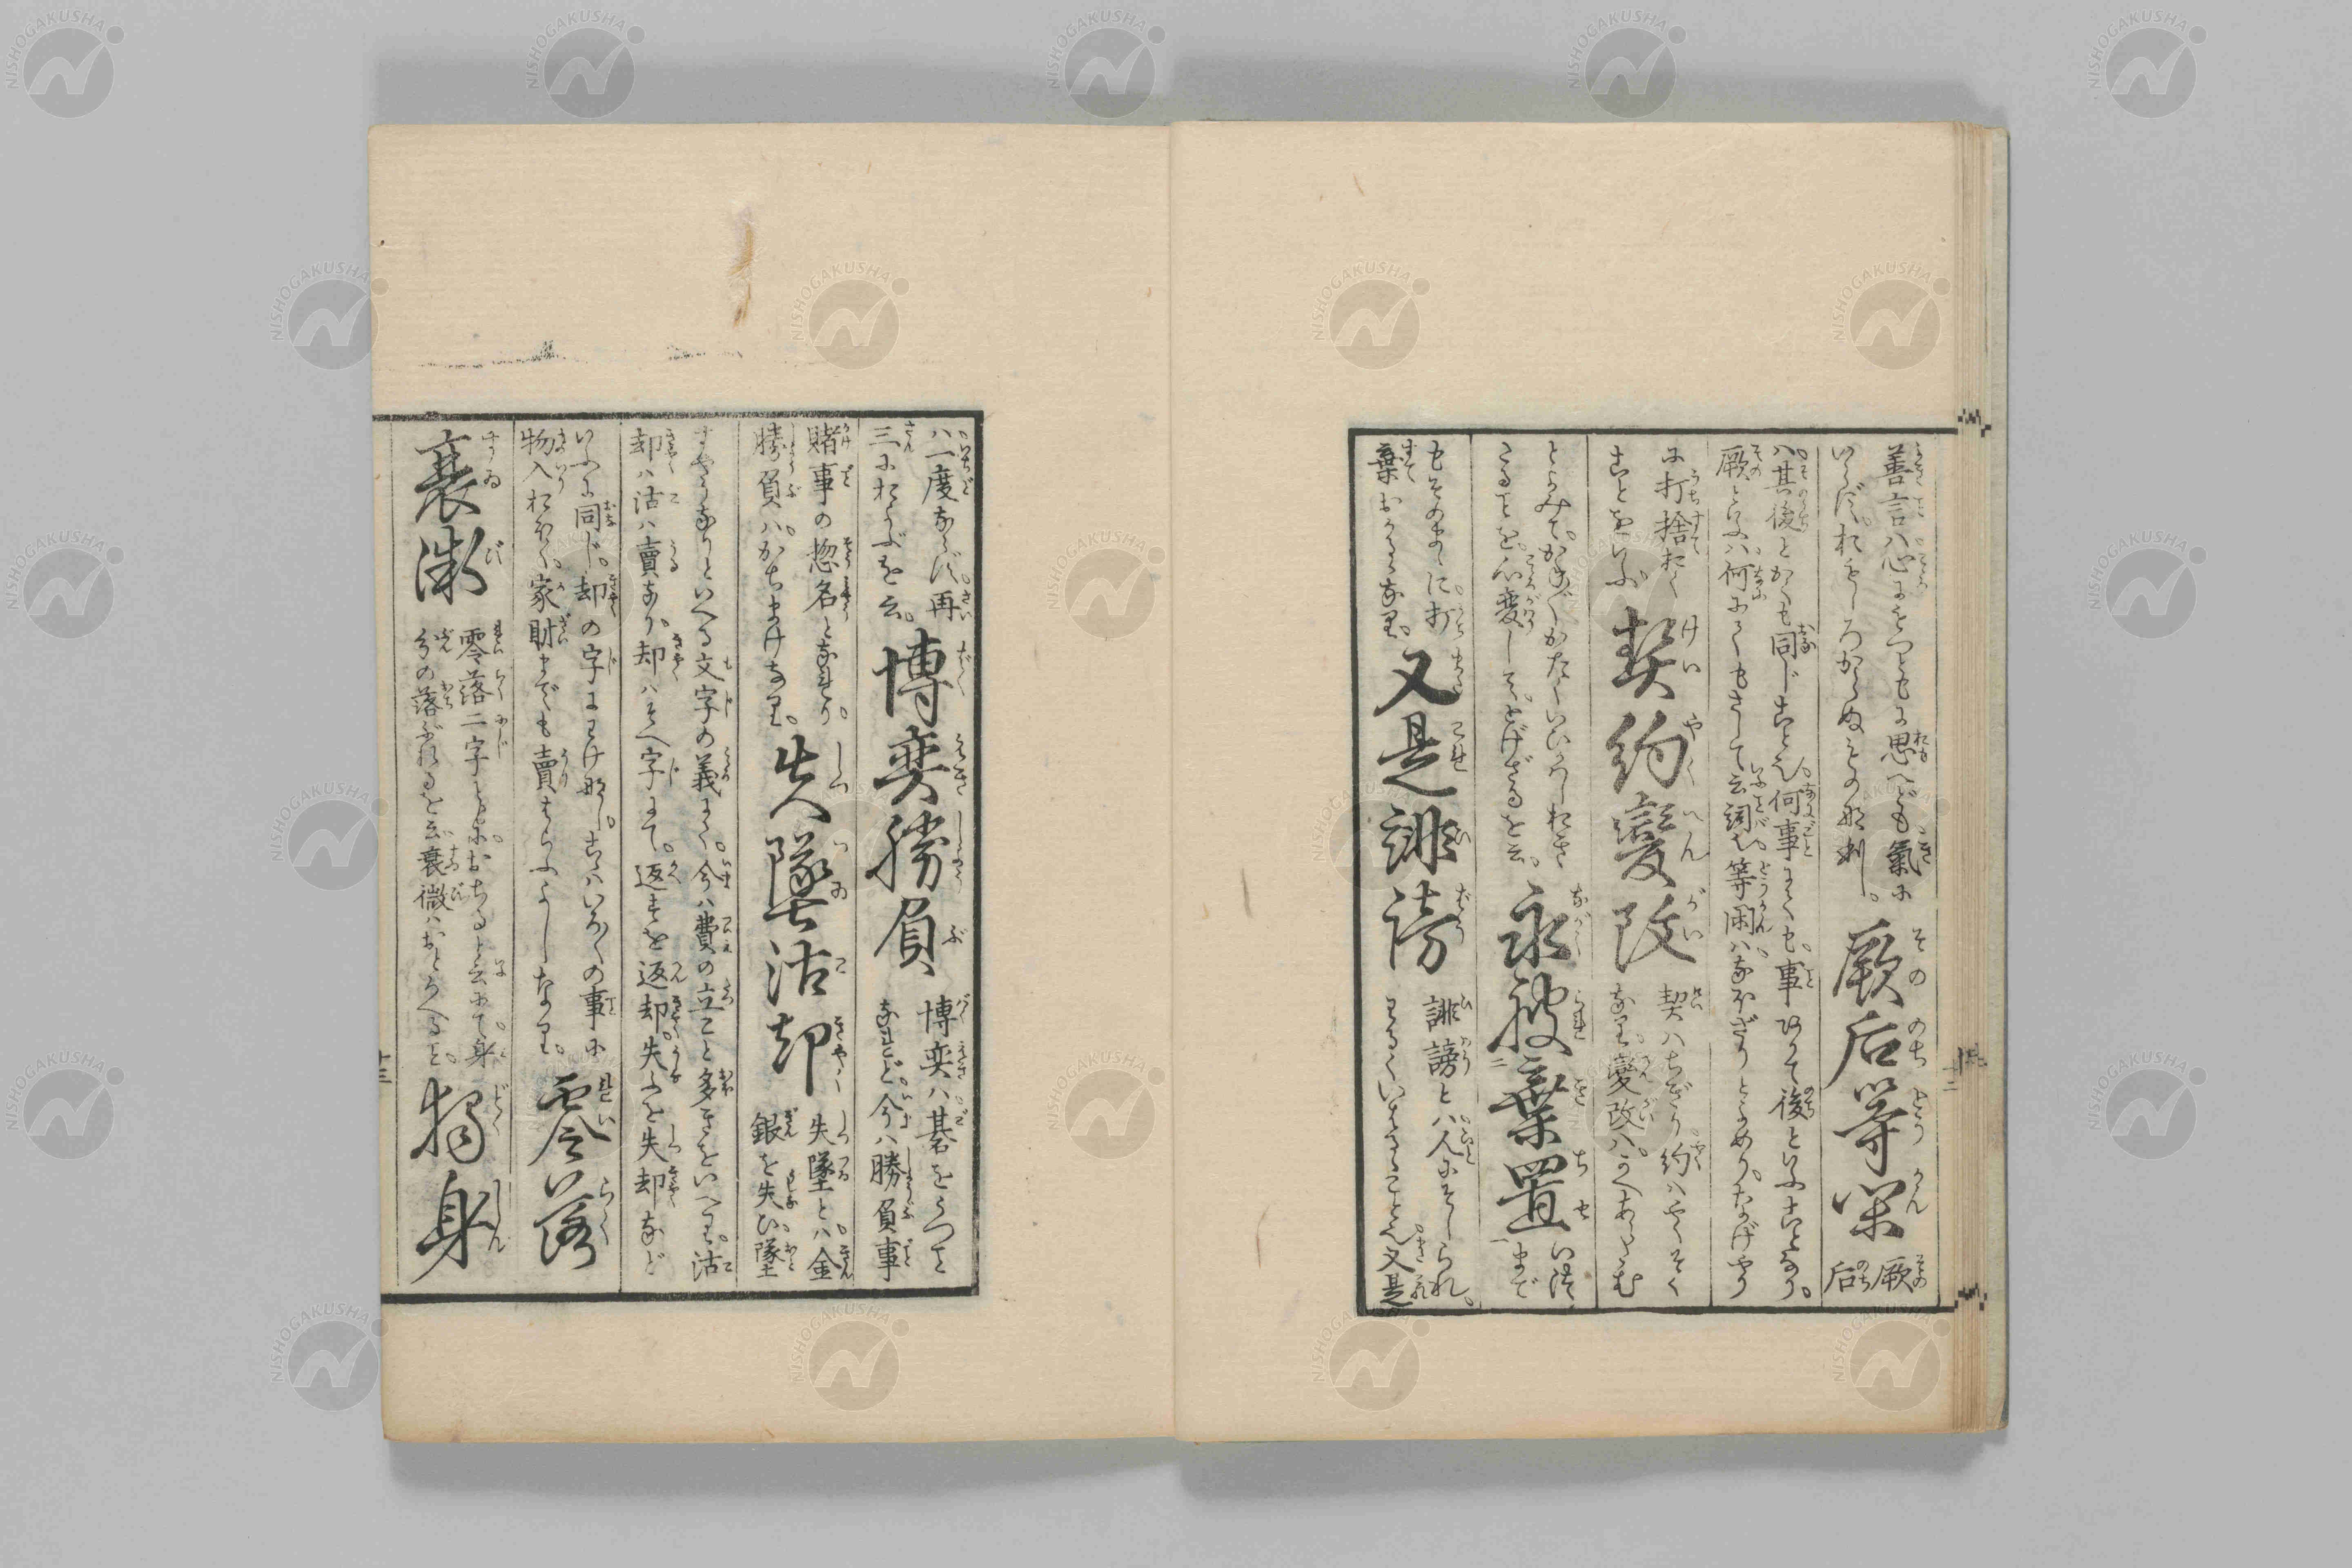 善言ハ心にもつとも思へども氣に
厥后等閑
厥
后
ハ其後とかくも同じことば
何事
事
後といふことなり。
厥といふハ何にてもさして云詞也。等閑ハなをざりとよめり。なげやり
に打捨おく
ことをいふ
契約變改
契ハちぎり約ハやくそく
なり。變改ハ。かへあらたむ
とよみて。かねてかたくいひかはしおき
たることを。心變して。とげざるを云。
永被棄置
いつ
まで
もそのまゝに。打
棄おかるゝ なり。
又是誹謗
誹謗とハ人にそしられ。
わるくいはるゝことを 又是
ハ一度ならず。再
三におよぶを云。
博奕勝負
博奕ハ碁をうつこと
なれど。今ハ勝負事
賭事の惣名となれり。
勝負ハ。かちまけなり。
失墜沽却
失墜とハ。金
銀を失ひ。墜
すやうなりといへる文字の義にて。今ハ費の立こと多きをいへり。沽
却ハ沽ハ賣なり。却ハそへ字にて。返すを返却。失ふを失却など
いふに同じ。却の字にわけなし。こゝハいろ〳〵の事に
物入おほく。家財までも賣はらふよしなり。
零落
衰微
零落二字ともに。おちると云にて。身
分の落ぶれるを云 衰微ハおとろへること。
獨身
NISHOGAKUSHA